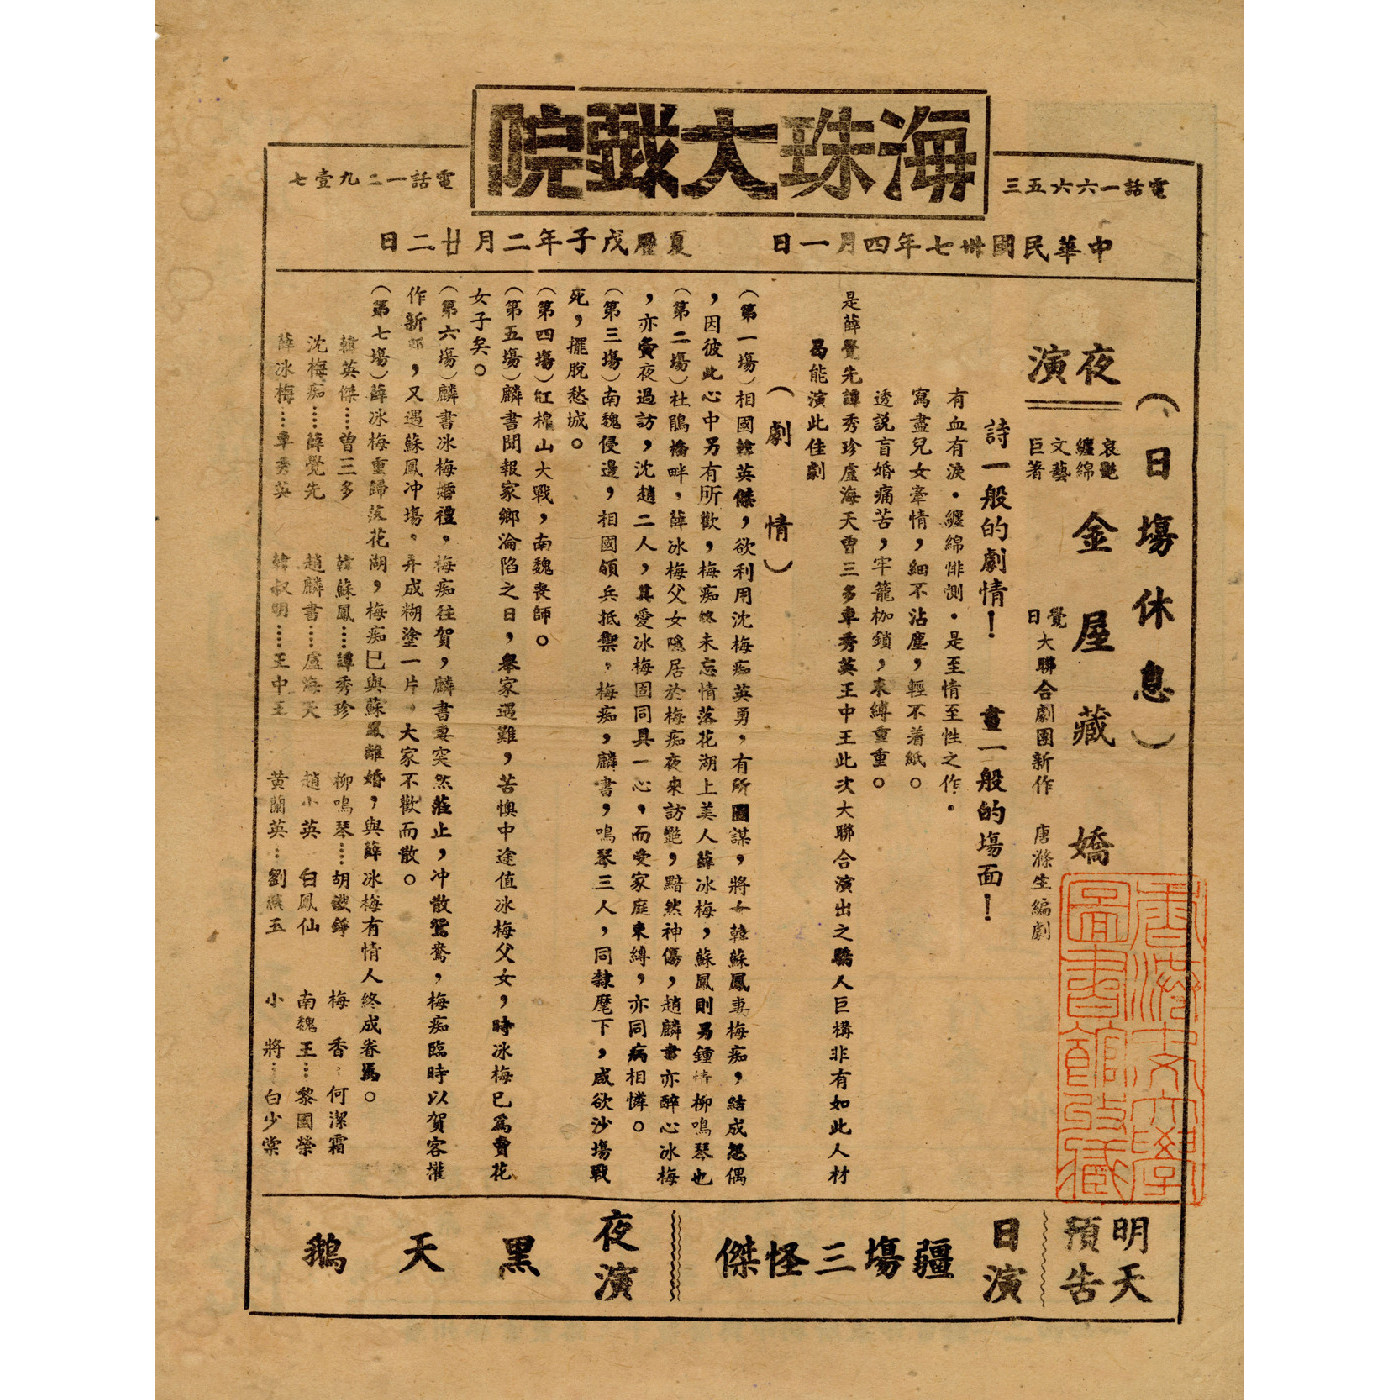 海珠大戲院
電話一六六五三
電話一二九壹七
中華民國卅七年四月一日
夏曆戊子年二月廿二日
（日塲休息）
夜演
哀艷纏綿文藝巨著
金屋藏嬌
覺日大聯合劇團新作 唐滌生編劇
詩一般的劇情！ 畫一般的塲面！
有血有淚．纏綿悱測．是至情至性之作．
寫盡兒女牽情，細不沾塵，輕不着紙。
透説盲婚痛苦，牢籠枷鎖，束縛重重。
是薛覺先譚秀珍盧海天曾三多車秀英王中王此次大聯合演出之驕人巨構非有如此人材
曷能演此佳劇
（劇情）
（第一塲）相國韓英傑，欲利用沈梅痴英勇，有所圖謀，將女韓蘇鳳妻梅痴，結成怨偶
，因彼此心中另有所歡，梅痴終未忘情落花湖上美人薛冰梅，蘇鳳則另鍾情柳鳴琴也
（第二塲）杜鵑橋畔，薛冰梅父女隱居於梅痴夜來訪艷，黯然神傷，趙麟書亦醉心冰梅
，亦夤夜過訪，沈趙二人，眞愛冰梅固同具一心，而受家庭束縛，亦同病相憐。
（第三塲）南魏侵邊，相國領兵抵禦，梅痴，麟書，鳴琴三人，同隸麾下，咸欲沙塲戰
死，擺脫愁城。
（第四塲）紅棉山大戰，南魏喪師。
（第五塲）麟書聞報家鄉淪陷之日，舉家遇難，苦懊中途值冰梅父女，時冰梅已爲賣花
女子矣。
（第六塲）麟書冰梅婚禮，梅痴往賀，麟書妻突然蒞止，冲散鴛鴦，梅痴臨時以賀客權
作新郎，又遇蘇鳳冲塲，弄成糊塗一片，大家不歡而散。
（第七塲）薛冰梅重歸落花湖，梅痴已與蘇鳳離婚，與薛冰梅有情人終成眷屬。
韓英傑……曾三多 韓蘇鳳……譚秀珍 柳鳴琴……胡鐵錚 梅香：何潔霜
沈梅痴……薛覺先 趙麟書……盧海天 趙小英：白鳳仙 南魏王……黎國榮
薛冰梅……車秀英 韓叔明……王中王 黄蘭英：劉艷玉 小將……白少棠
香港中文大學圖書館敬藏
明天預告
日演
疆塲三怪傑
夜演
黑天鵝